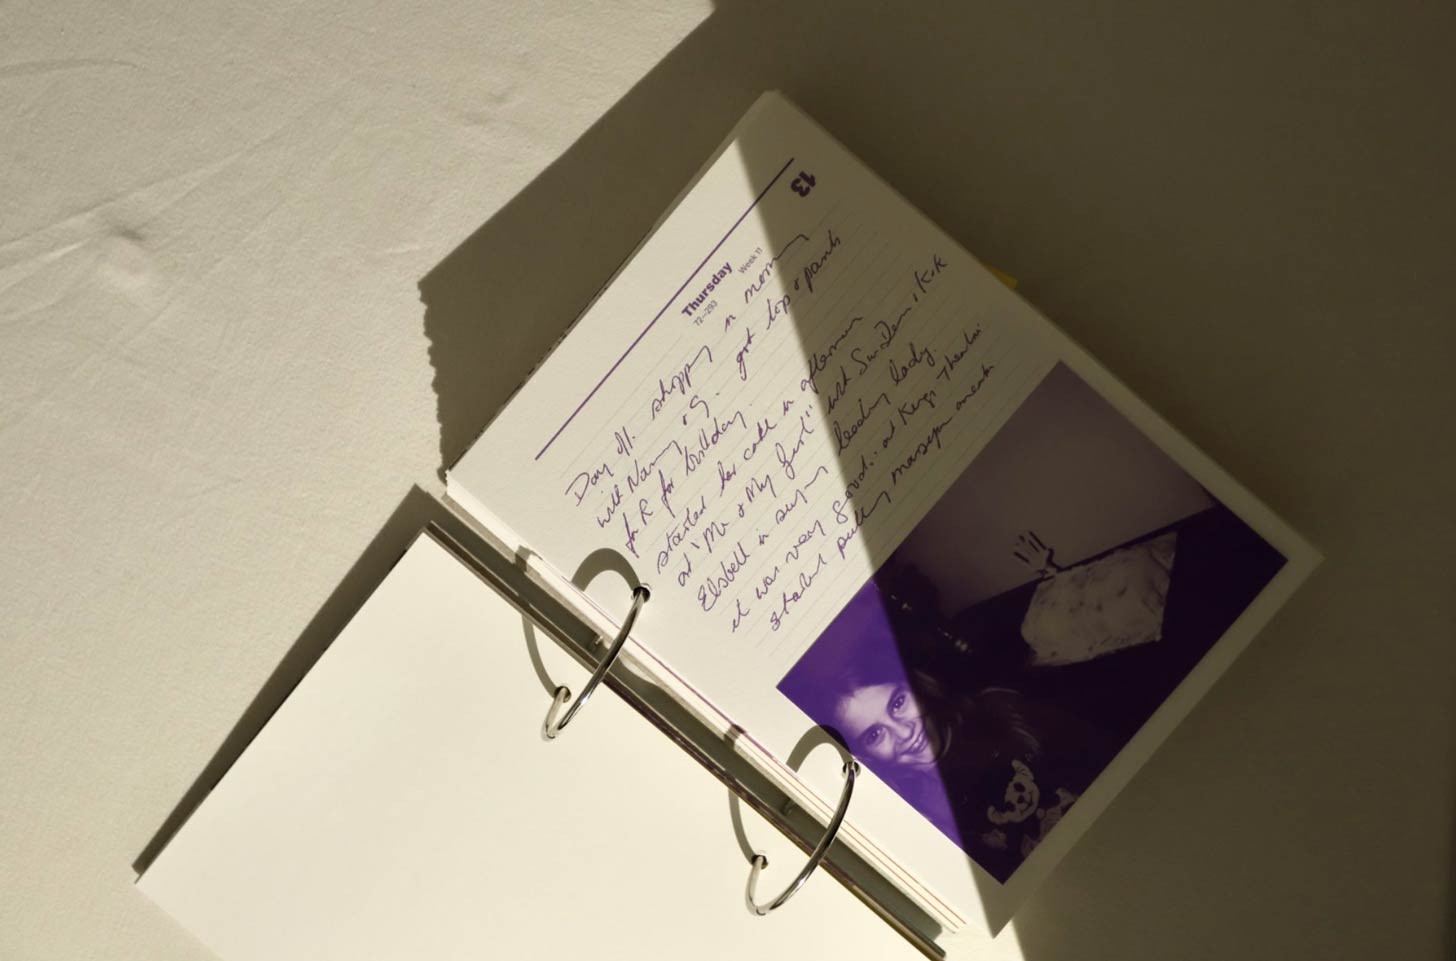 13
Thursday
72–293 Week 11
Day off. shopping in morning
with Nanny + G. got top + pants
for R for birthday.
started her cake in afternoon
at "Me + My Girl" with Su Dem, K+K
Elsbeth in saying leading lady.
it was very good.. at Kings Theatre
started putting